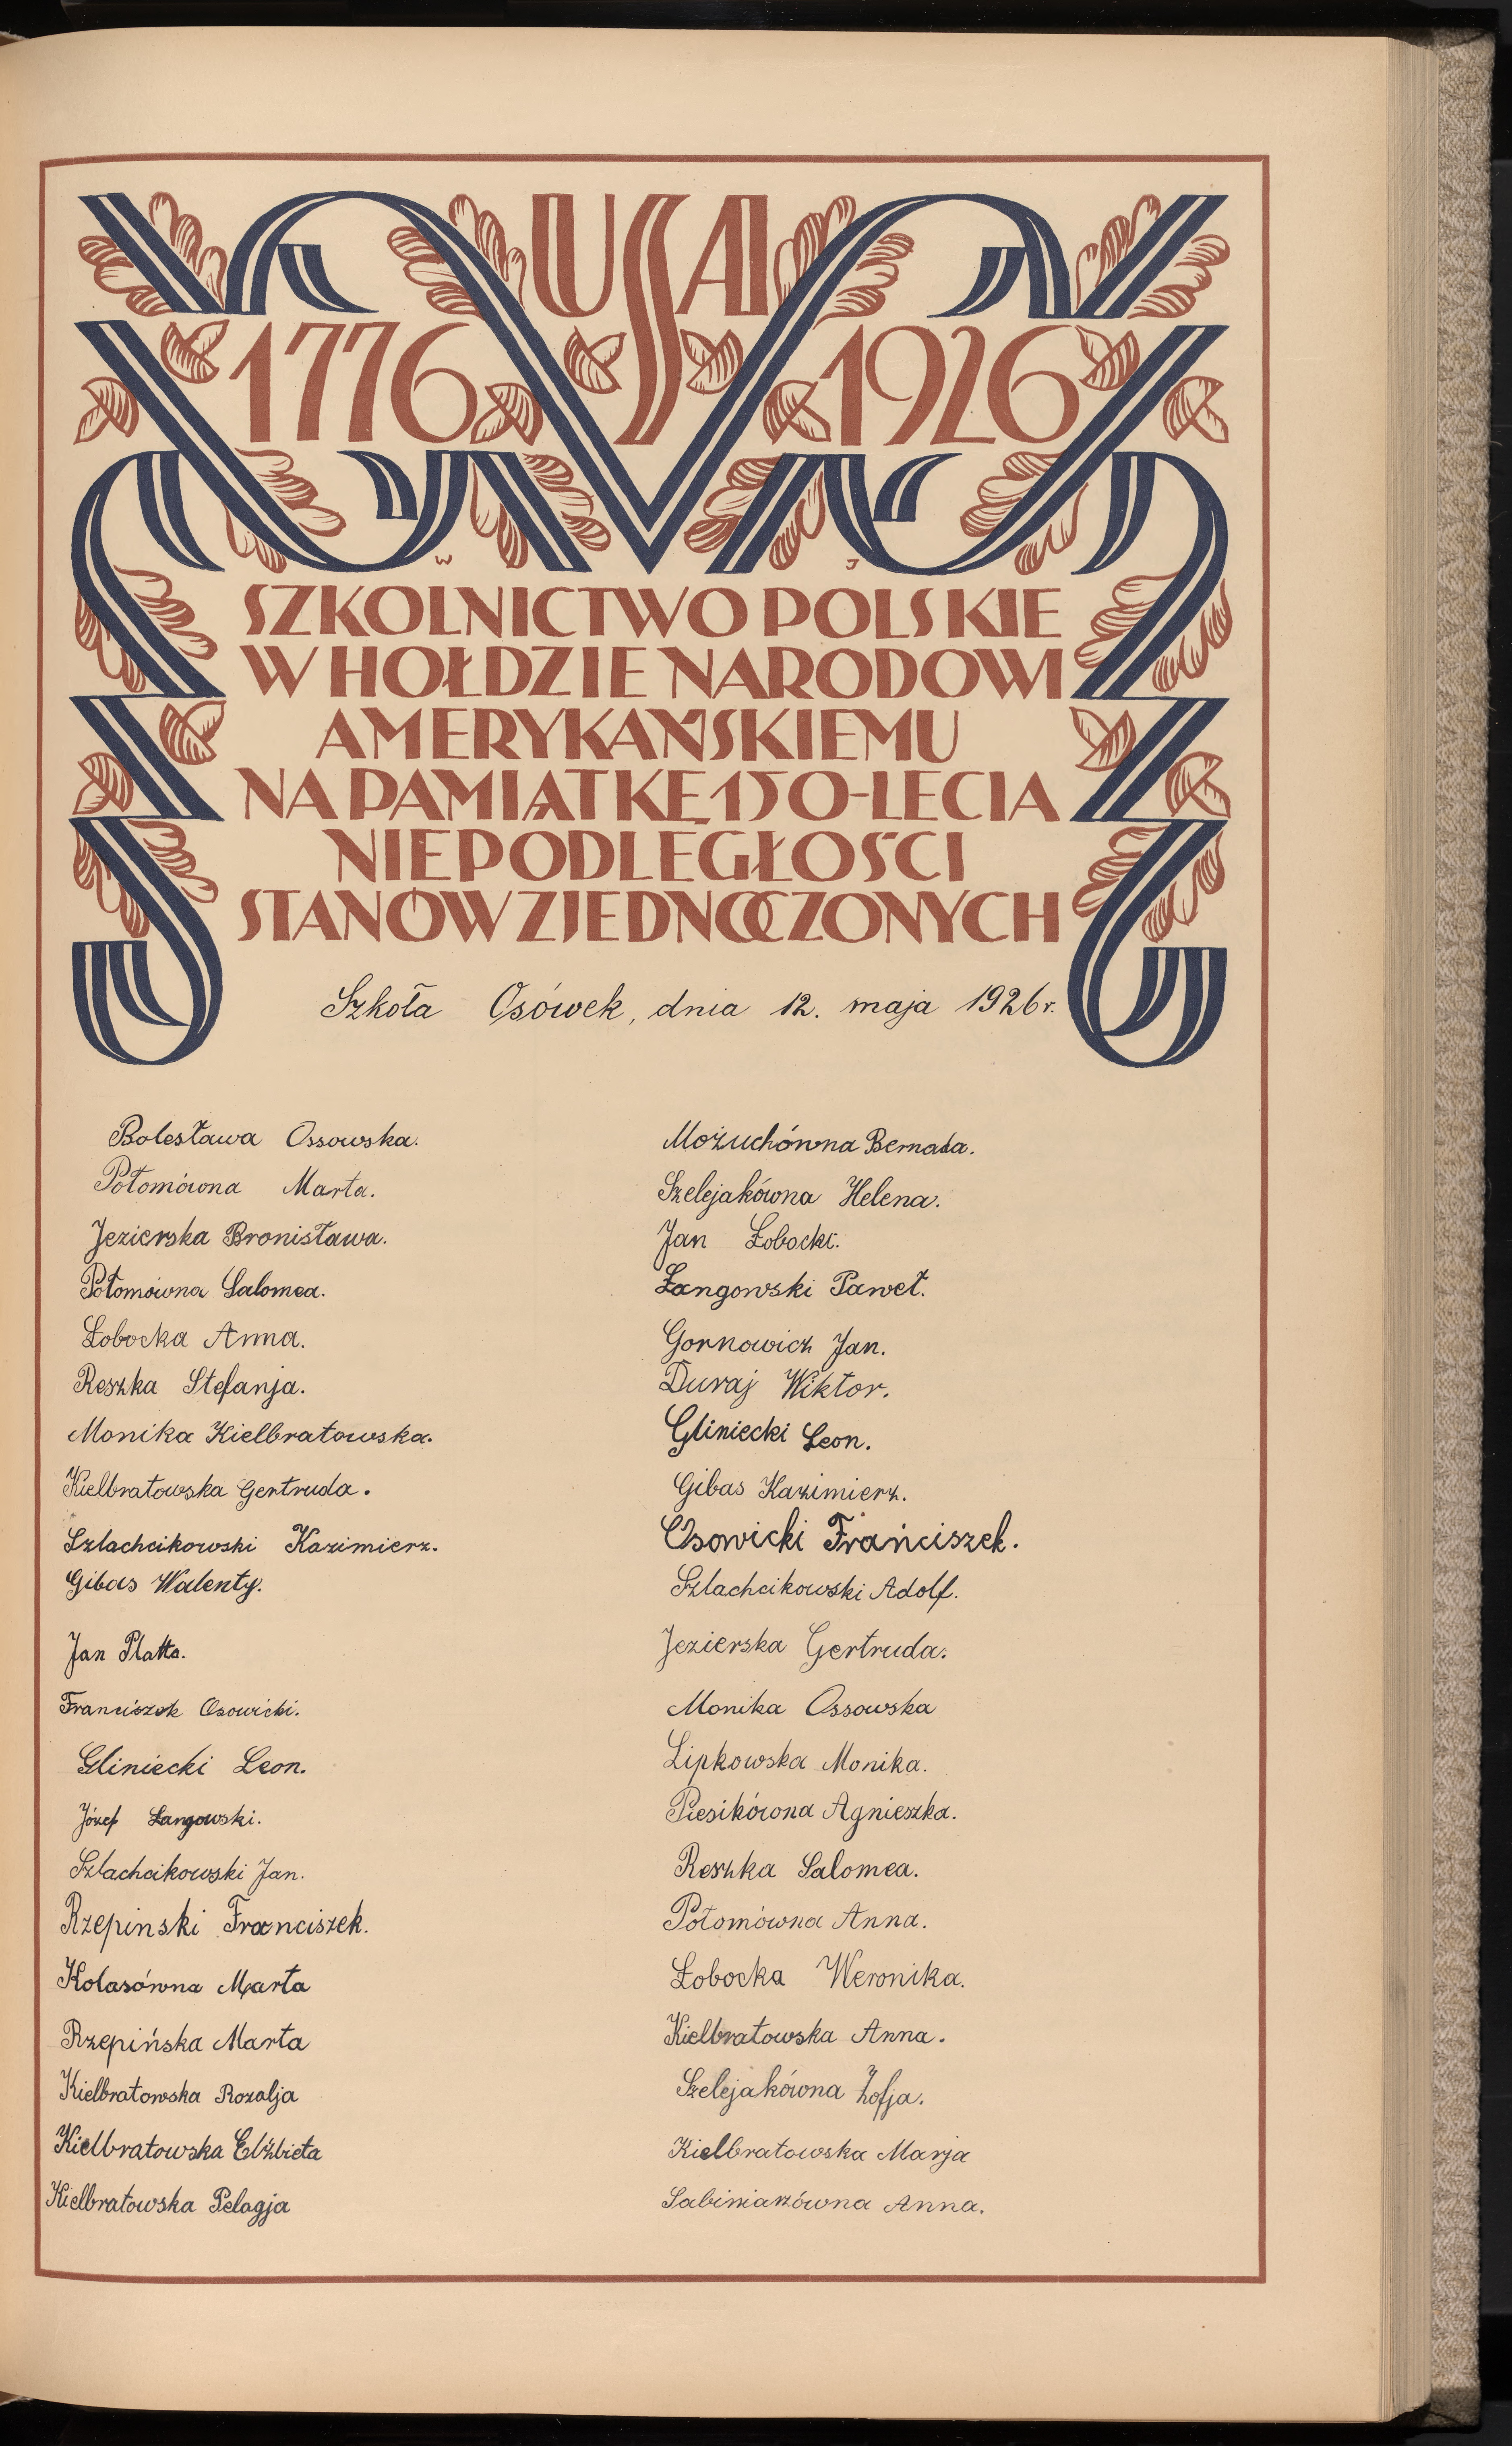 USA
1776 1926
W J
SZKOLNICTWO POLSKIE
W HOŁDZIE NARODOWI
AMERYKAŃSKIEMU
NA PAMIĄTKĘ 150-LECIA
NIEPODLEGŁOŚCI
STANÓW ZJEDNOCZONYCH
Szkoła Osówek, dnia 12. maja 1926 r.
Bolesława Ossowska.
Połomówna Marta.
Jezierska Bronisława.
Połomówna Salomea.
Łobocka Anna.
Reszka Stefanja.
Monika Kielbratowska.
Kielbratowska Gertruda.
Szlachcikowski Kazimierz.
Gibas Walenty.
Jan Platta.
Franciszek Osowicki.
Gliniecki Leon.
Józef Łangowski.
Szlachcikowski Jan.
Rzepinski Franciszek.
Kolasówna Marta
Rzepińska Marta
Kielbratowska Rozalja
Kielbratowska Elżbieta
Kielbratowska Pelagja
Możuchówna Bernada.
Szelejakówna Helena.
Jan Łobocki.
Łangowski Paweł.
Gornowicz Jan.
Duraj Wiktor.
Gliniecki Leon.
Gibas Kazimierz.
Osowicki Frańciszek.
Szlachcikowski Adolf.
Jezierska Gertruda.
Monika Ossowska
Lipkowska Monika.
Piesikówna Agnieszka.
Reszka Salomea.
Połomówna Anna.
Łobocka Weronika.
Kielbratowska Anna.
Szelejakówna Zofja.
Kielbratowska Marja
Sabiniarzówna Anna.